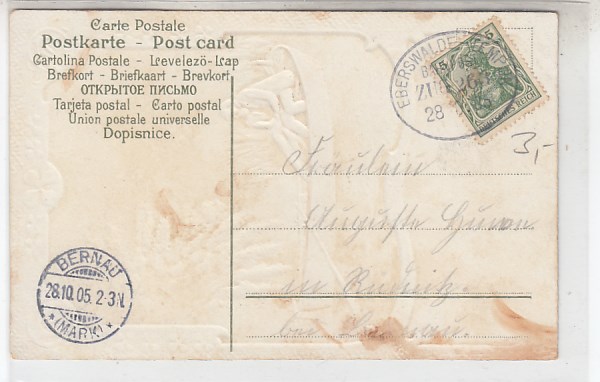 Carte Postale
Postkarte - Post card
Cartolina Postale - Levelező-Lap
Brefkort - Briefkaart - Brevkort
ОТКРЫТОЕ ПИСЬМО
Tarjeta postal - Carto postal
Union postale universelle
Dopisnice.
EBERSWALDE
BAHNPOST
ZUG
28
5
DEUTSCHES REICH
3,-
Fräulein
Auguste
in Rüdnitz
bei Bernau.
BERNAU
28.10.05. 2-3N.
* (MARK) *